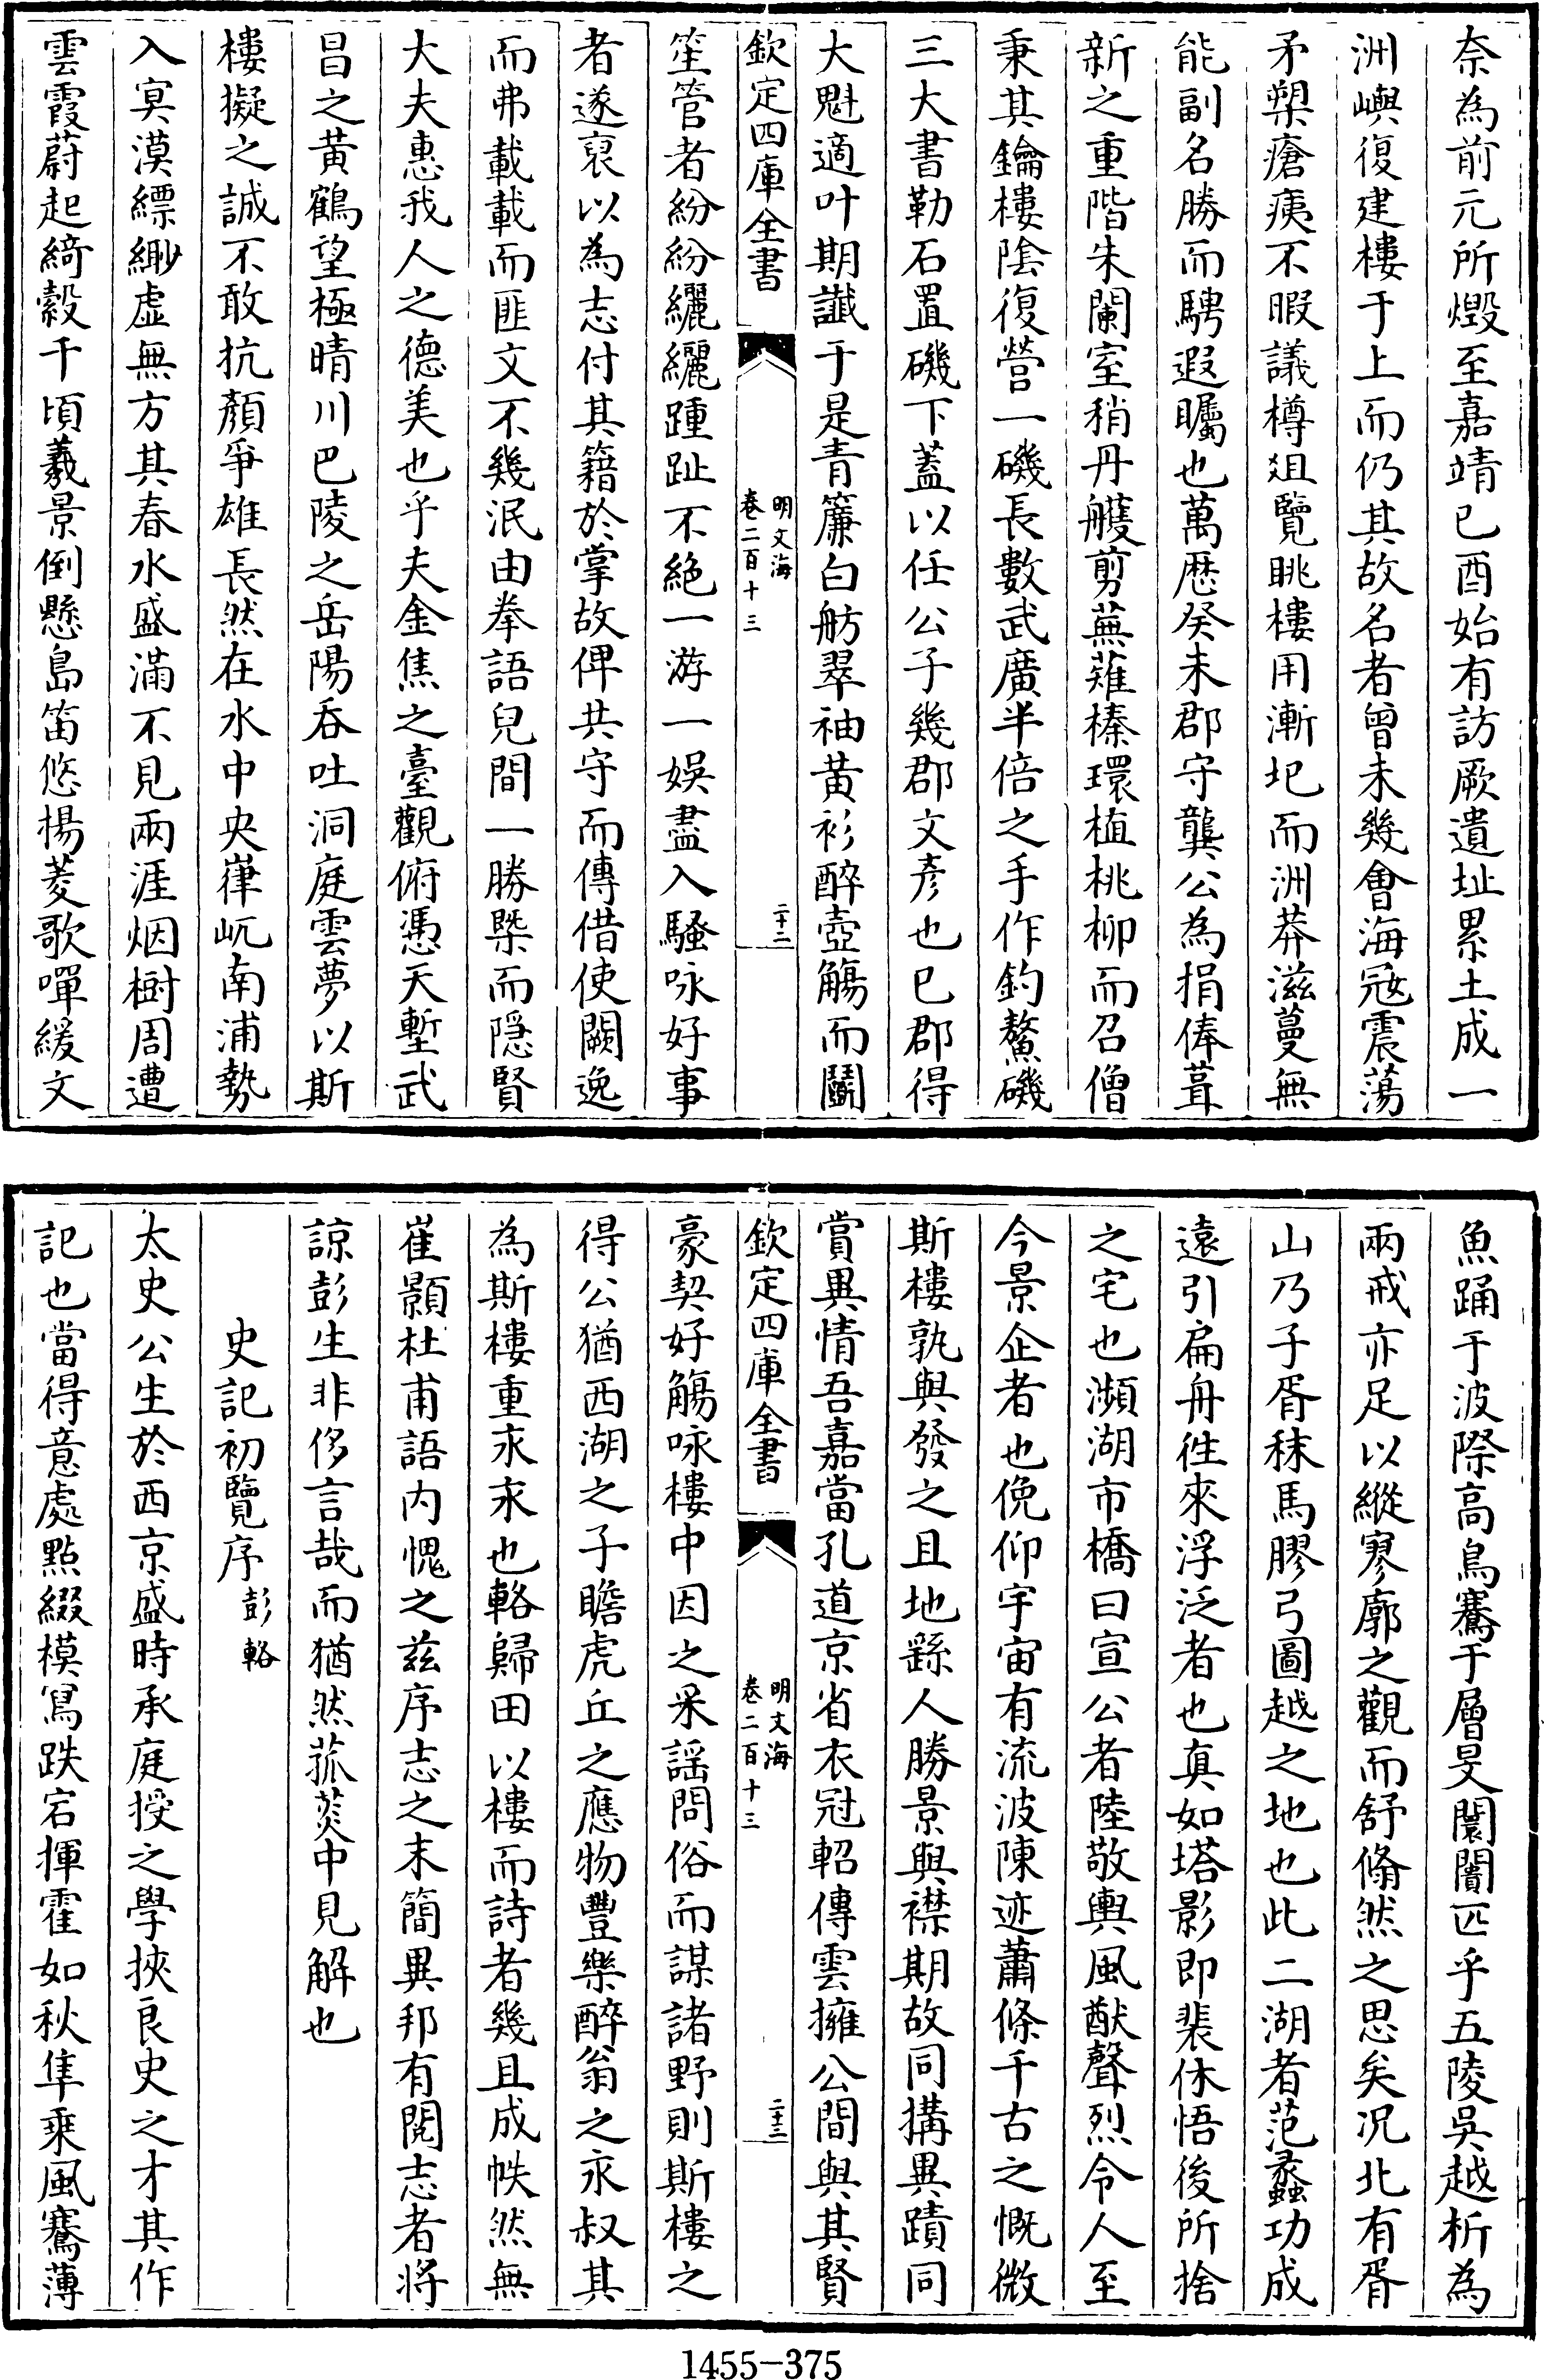 奈為前元所燬至嘉靖已酉始有訪厥遺址累土成一
洲嶼復建樓于上而仍其故名者曾未幾會海冦震蕩
矛槊瘡痍不暇議樽俎覽眺樓用漸圯而洲莽滋蔓無
能副名勝而騁遐矚也萬厯癸未郡守龔公為捐俸葺
新之重階朱闌室稍丹雘剪蕪薙榛環植桃柳而召僧
秉其鑰樓陰復營一磯長數武廣半倍之手作釣鰲磯
三大書勒石置磯下蓋以任公子幾郡文彥也已郡得
大魁適叶期讖于是青簾白舫翠袖黄衫醉壺觴而鬬
欽定四庫全書
明文海
卷二百十三
二十二
笙管者紛紛纚纚踵趾不絶一游一娱盡入騷咏好事
者遂裒以為志付其籍於掌故俾共守而傳借使闕逸
而弗載載而匪文不幾泯由拳語兒間一勝槩而隠賢
大夫惠我人之德美也乎夫金焦之臺觀俯憑天塹武
昌之黄鶴望極晴川巴陵之岳陽吞吐洞庭雲夢以斯
樓擬之誠不敢抗顏爭雄長然在水中央嵂屼南浦勢
入㝠漠縹緲虚無方其春水盛滿不見兩涯烟樹周遭
雲霞蔚起綺縠千頃羲景倒懸島笛悠揚菱歌嘽緩文
魚踊于波際高鳥騫于層旻闤闠匹乎五陵吳越析為
兩戒亦足以縱寥廓之觀而舒翛然之思矣况北有胥
山乃子胥秣馬膠弓圖越之地也此二湖者范蠡功成
遠引扁舟徃來浮泛者也真如塔影即裴休悟後所捨
之宅也瀕湖市橋曰宣公者陸敬輿風猷聲烈令人至
今景企者也俛仰宇宙有流波陳迹蕭條千古之慨微
斯樓孰與發之且地繇人勝景與襟期故同搆異蹟同
賞異情吾嘉當孔道京省衣冠軺傳雲擁公間與其賢
欽定四庫全書
明文海
卷二百十三
二十三
豪契好觴咏樓中因之采謡問俗而謀諸野則斯樓之
得公猶西湖之子瞻虎丘之應物豐樂醉翁之永叔其
為斯樓重永永也輅歸田以樓而詩者幾且成帙然無
崔顥杜甫語内愧之兹序志之末簡異邦有閱志者將
諒彭生非侈言哉而猶然菰蘆中見解也
史記初覽序 彭輅
太史公生於西京盛時承庭授之學挾良史之才其作
記也當得意處點綴模寫跌宕揮霍如秋隼乘風騫薄
1455-375